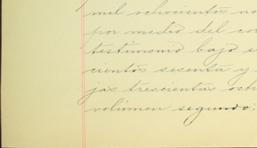 mil ochocientos no
por medio del co
testimonio bajo e
cientos sesenta y
jas trescientas och
volúmen segundo.